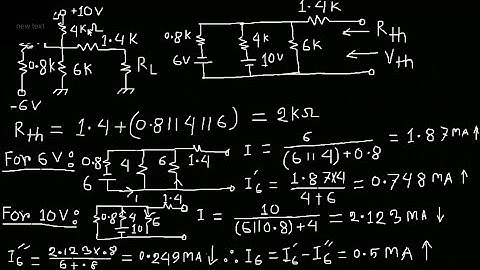 new text
+10V
4KΩ
1.4K
0.8K
6K
R_L
-6V
1.4K
0.8K
4K
6K
6V
10V
R_th
V_th
R_th = 1.4+(0.8||4||6) = 2KΩ
For 6V: 0.8 4 6 1.4 6 I = 6/((6||4)+0.8) = 1.87 mA ↑
I'_6 = (1.87x4)/(4+6) = 0.748 mA ↑
For 10V: 0.8 4 10 6 1.4 I = 10/((6||0.8)+4) = 2.123 mA ↓
I''_6 = (2.123x.8)/(6+.8) = 0.249 mA ↓ ∴ I_6 = I'_6 - I''_6 = 0.5 mA ↑